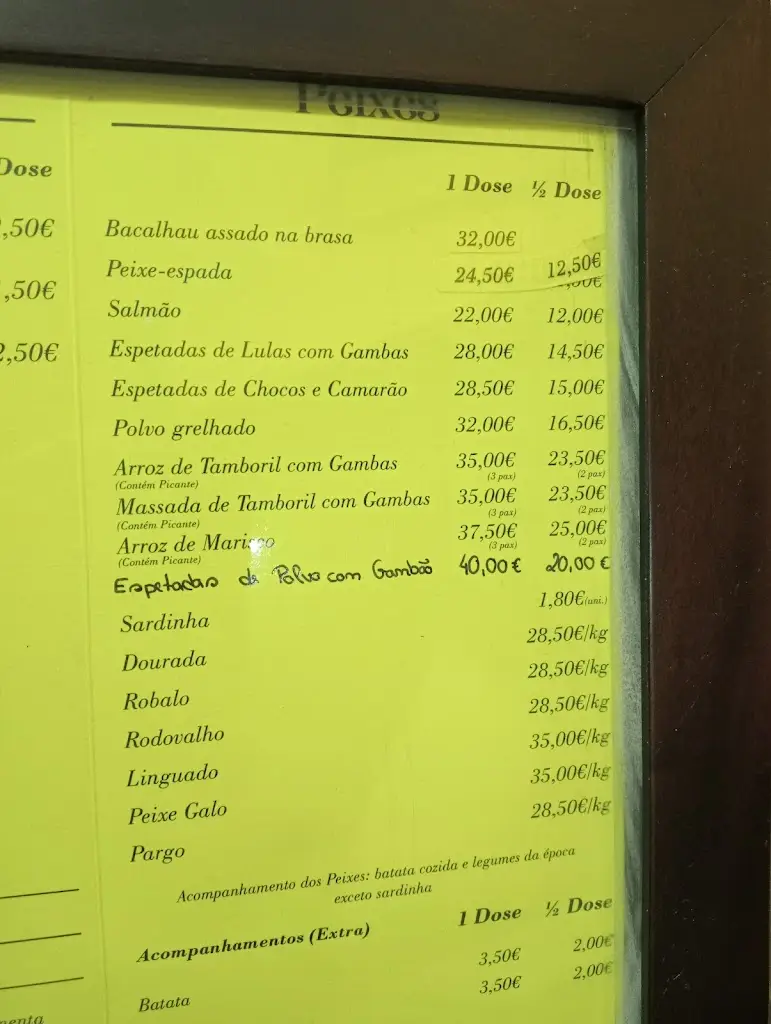 Peixes
Dose
,50€
,50€
2,50€
1 Dose ½ Dose
Bacalhau assado na brasa 32,00€
Peixe-espada 24,50€ 12,50€
Salmão 22,00€ 12,00€
Espetadas de Lulas com Gambas 28,00€ 14,50€
Espetadas de Chocos e Camarão 28,50€ 15,00€
Polvo grelhado 32,00€ 16,50€
Arroz de Tamboril com Gambas 35,00€ 23,50€
(Contém Picante) (3 pax) (2 pax)
Massada de Tamboril com Gambas 35,00€ 23,50€
(Contém Picante) (3 pax) (2 pax)
Arroz de Marisco 37,50€ 25,00€
(Contém Picante) (3 pax) (2 pax)
Espetadas de Polvo com Gambão 40,00€ 20,00€
Sardinha 1,80€(uni.)
Dourada 28,50€/kg
Robalo 28,50€/kg
Rodovalho 28,50€/kg
Linguado 35,00€/kg
Peixe Galo 35,00€/kg
Pargo 28,50€/kg
Acompanhamento dos Peixes: batata cozida e legumes da época
exceto sardinha
Acompanhamentos (Extra) 1 Dose ½ Dose
3,50€ 2,00€
Batata 3,50€ 2,00€
menta